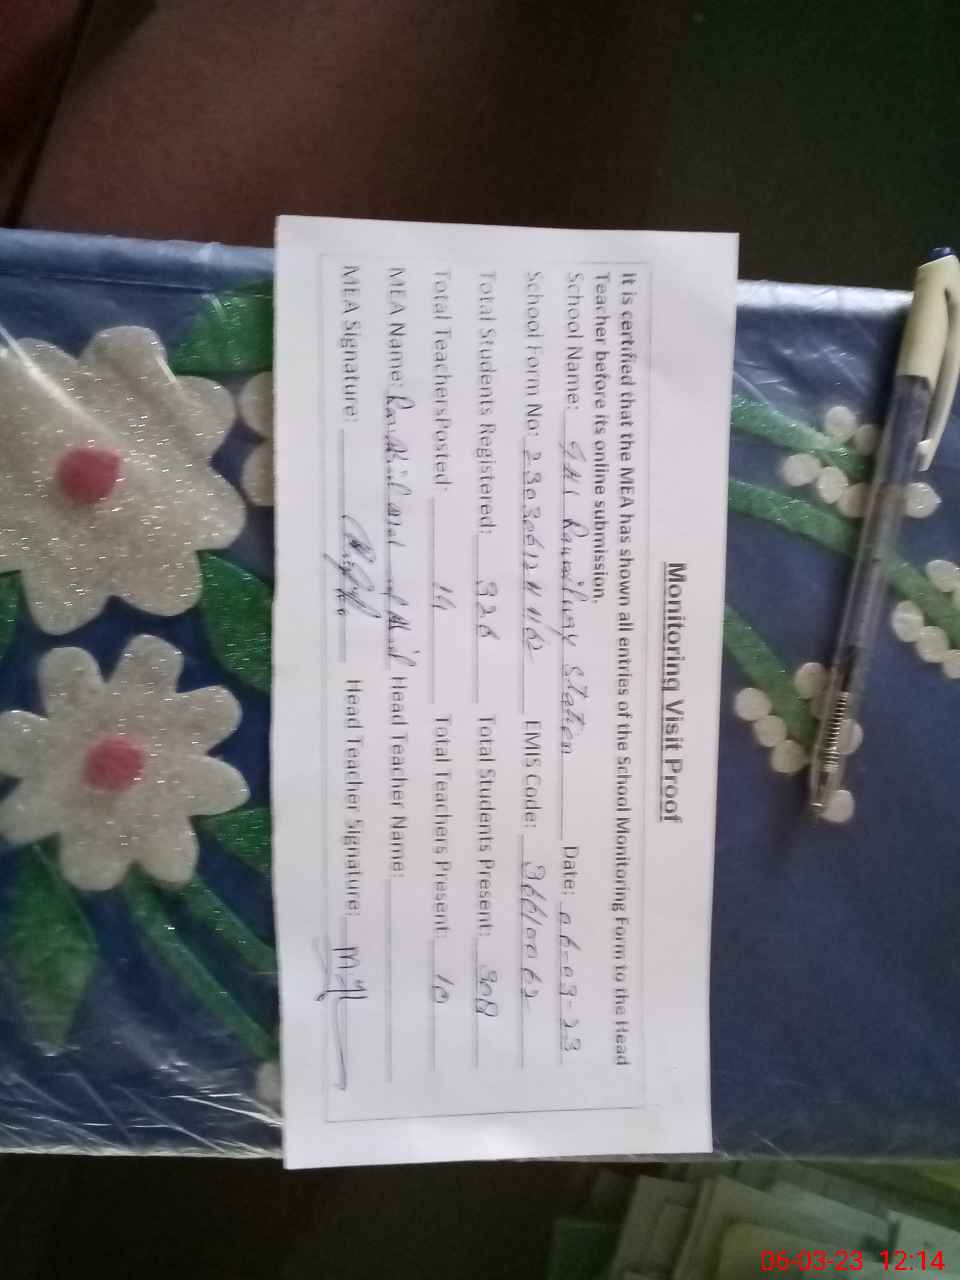 Monitoring Visit Proof
It is certified that the MEA has shown all entries of the School Monitoring Form to the Head
Teacher before its online submission.
School Name: Railway Station Date: 06-03-23
School Form No: EMIS Code:
Total Students Registered: 326 Total Students Present: 308
Total TeachersPosted: 14 Total Teachers Present: 10
MEA Name: Head Teacher Name:
MEA Signature: Head Teacher Signature:
06-03-23 12:14